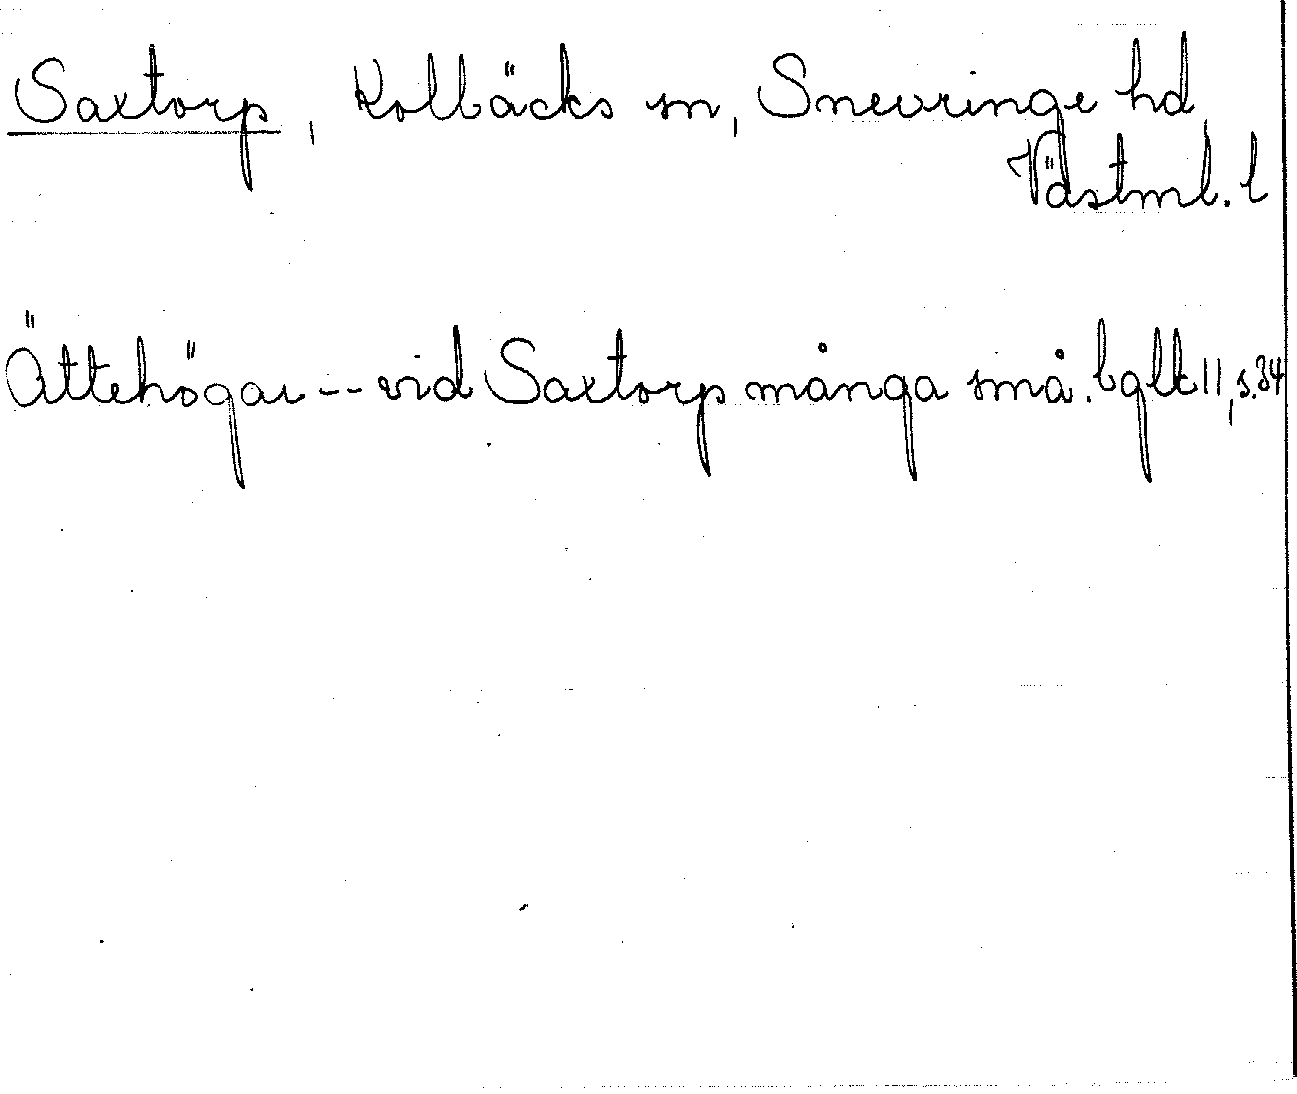 Saxtorp, Kolbäcks sn, Snevringe hd,
Västml. l
Ättehögar -- vid Saxtorp många små. bglk 11, s. 34